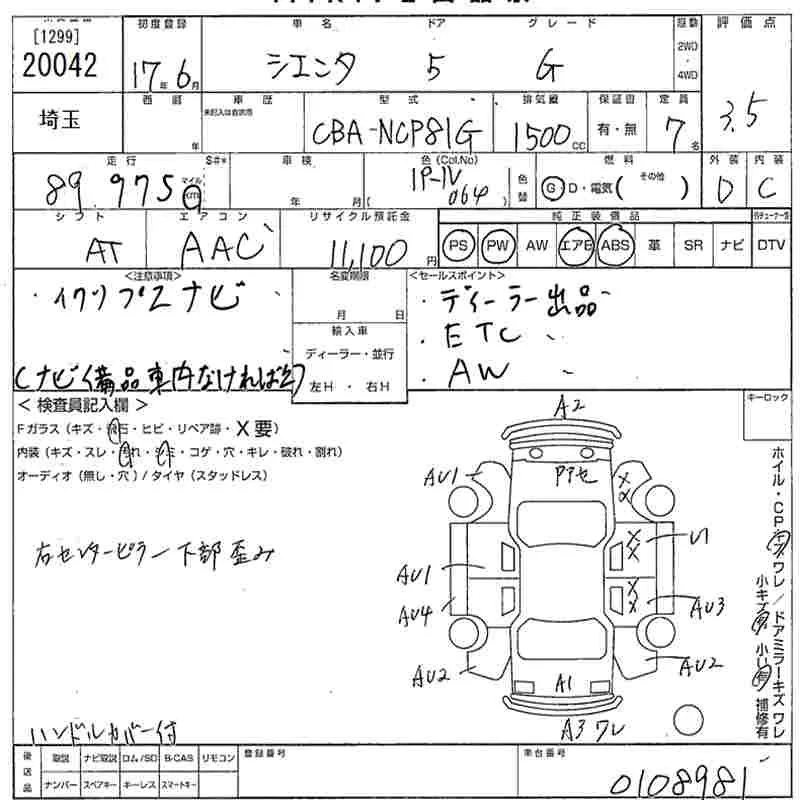 [1299]
20042
初度登録
17年6月
車名
シエンタ
ドア
5
グレード
G
駆動
2WD
・
4WD
評価点
3.5
埼玉
年
車歴
未記入は自家用
型式
CBA-NCP81G
排気量
1500cc
保証書
有・無
定員
7名
走行
89,975
マイル
km
S#*
車検
年 月
色(Col.No)
064
色替
燃料
G D・電気( その他 )
外装
D
内装
C
シフト
AT
エアコン
AAC
リサイクル預託金
11,100円
純正装備品
PS PW AW エアB ABS 革 SR ナビ DTV
<注意事項>
・イクリプスナビ
(ナビ備品車内なければ欠
名変期限
月 日
輸入車
ディーラー・並行
左H・右H
<セールスポイント>
・ディーラー出品
・ETC
・AW
<検査員記入欄>
Fガラス(キズ・飛石・ヒビ・リペア跡・X要)
内装(キズ・スレ・汚れ・シミ・コゲ・穴・キレ・破れ・割れ)
オーディオ(無し・穴)/タイヤ(スタッドレス)
右センターピラー下部歪み
ハンドルカバー付
キーロック
A2
AU1
XX
XX
U1
AU1
XX
AU4
AU3
AU2
AU2
A1
A3ワレ
ホイル・CPキズワレ/ドアミラーキズワレ
補修有
後送品
取説 ナビ取説 ロム/SD B-CAS リモコン
ナンバー スペアキー キーレス スマートキー
登録番号
車台番号
0108981